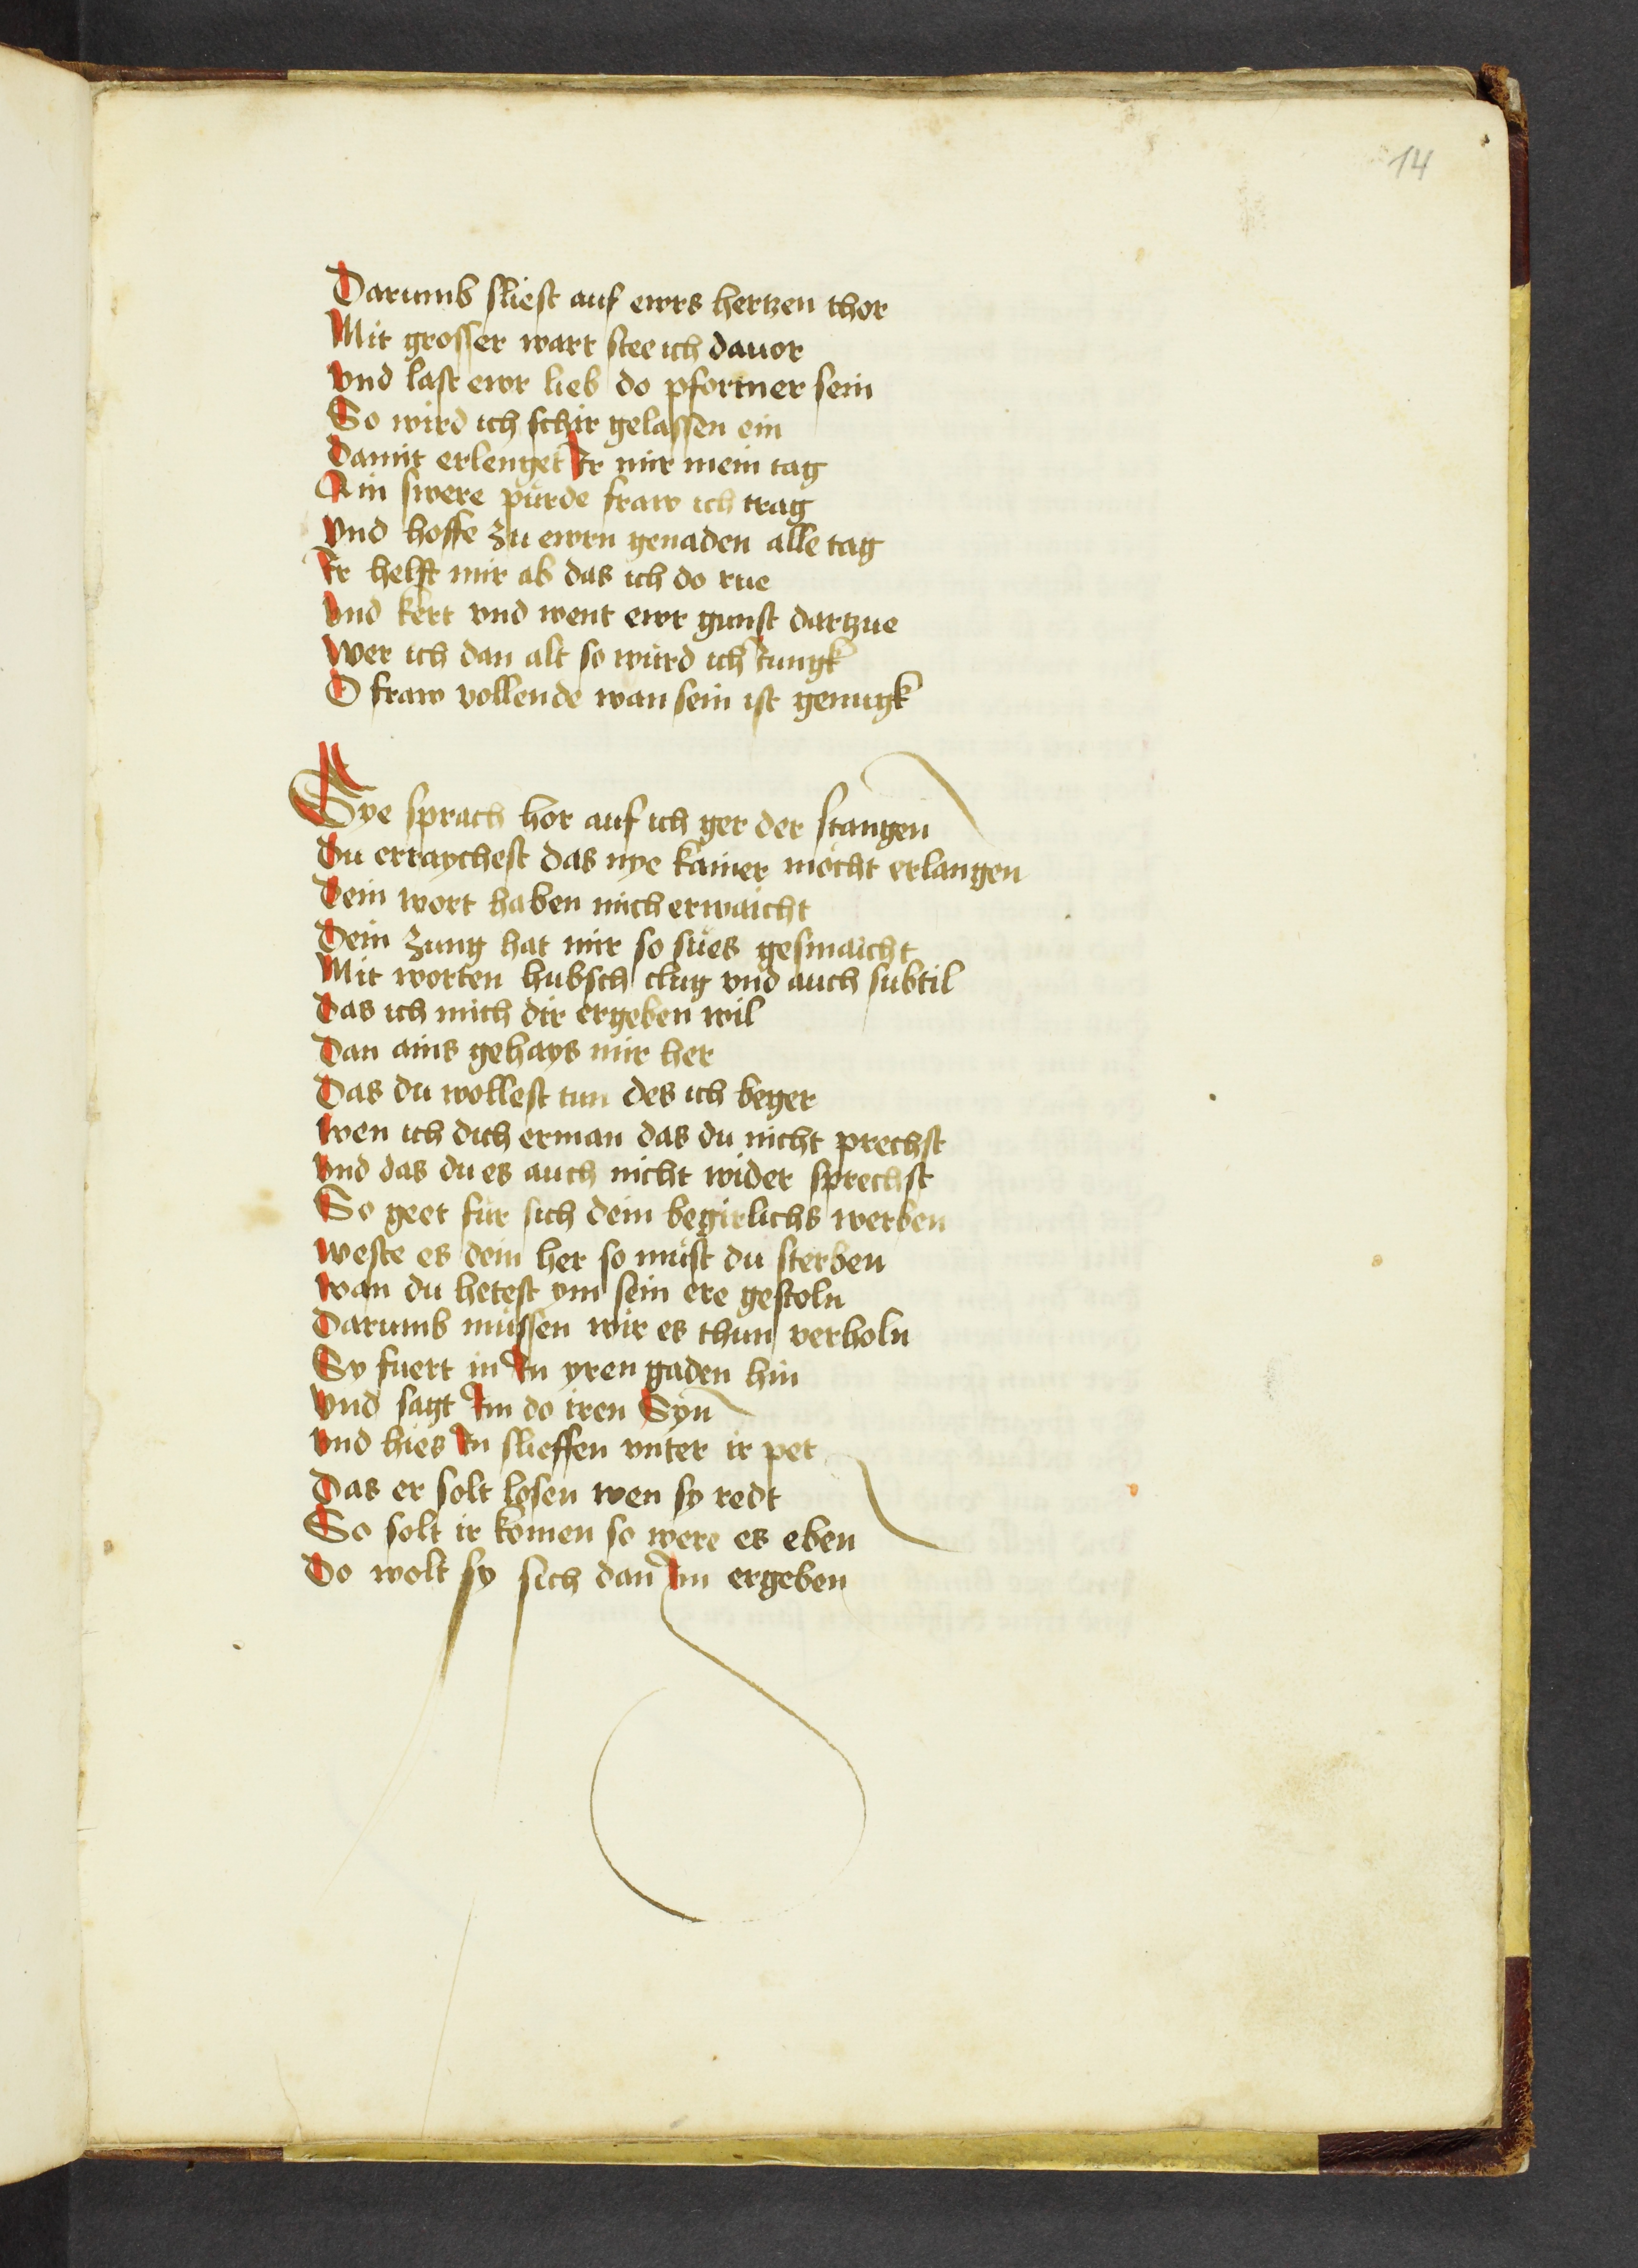 14
Darumb sliest auf ewrs hertzen thor
Mit grosser wart stee ich dauor
vnd last ewr lieb do pfortner sein
So wird ich schir gelassen ein
Damit erlenget Ir mir mein tag
Ain swere pürde fraw ich trag
Vnd hoffe zu ewrn genaden alle tag
Ir helft mir ab das ich do rue
vnd kert vnd went ewr gunst dartzue
Wer ich dan alt so würd ich Iungk
O fraw vollende wan sein ist genugk
Sye sprach hor auf ich ger der stangen
Du erraychest das nye kainer möcht erlangen
Dein wort haben mich erwaicht
Dein zung hat mir so sües gesmaicht
Mit worten hubsch clug vnd auch subtil
Das ich mich dir ergeben wil
Dan ains gehays mir her
Das du wollest tun des ich beger
wen ich dich erman das du nicht prechst
vnd das du es auch nicht wider sprechst
So geet für sich dein begirlichs werben
weste es dein her so müst du sterben
wan du hetest ym sein ere gestoln
Darumb müssen wir es thun verholn
Sy fuert in In yren gaden hin
Vnd sagt Im do iren Syn
vnd hies In slieffen vnter ir pet
Das er solt losen wen sy redt
So solt ir komen so were es eben
Do wolt sy sich dan Im ergeben